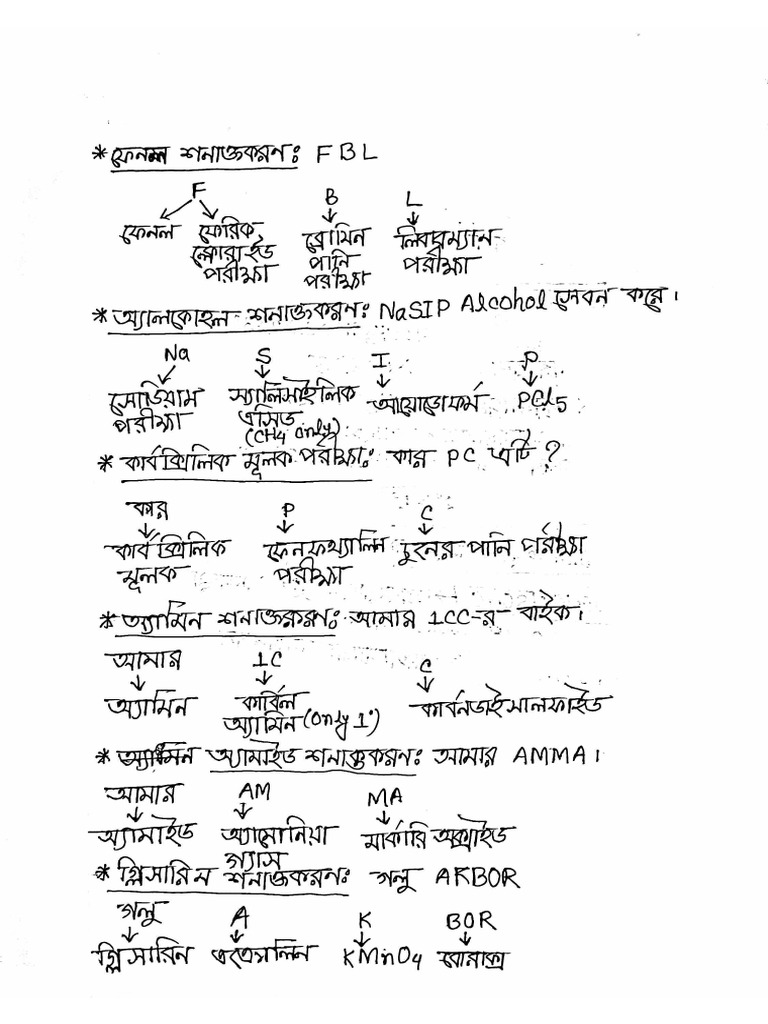 * ফেনল শনাক্তকরণঃ FBL
F B L
ফেনল ফেরিক ব্রোমিন লিবারম্যান
ক্লোরাইড পানি পরীক্ষা
পরীক্ষা পরীক্ষা
* অ্যালকোহল শনাক্তকরণঃ NaSIP Alcohol সেবন করে।
Na S I P
সোডিয়াম স্যালিসাইলিক আয়োডোফর্ম PCl5
পরীক্ষা এসিড
(CH4 only)
* কার্বক্সিলিক মূলক পরীক্ষাঃ কার PC এটি?
কার P C
কার্বক্সিলিক ফেনফথ্যালিন চুনের পানি পরীক্ষা
মূলক পরীক্ষা
* অ্যামিন শনাক্তকরণঃ আমার 1CC-র বাইক।
আমার 1C C
অ্যামিন কার্বিল কার্বনডাইসালফাইড
অ্যামিন (only 1°)
* অ্যামাইড শনাক্তকরণঃ আমার AMMA।
আমার AM MA
অ্যামাইড অ্যামোনিয়া মার্কারি অক্সাইড
গ্যাস
* গ্লিসারিন শনাক্তকরণঃ গলু AKBOR
গলু A K BOR
গ্লিসারিন KMnO4 বোরাক্স